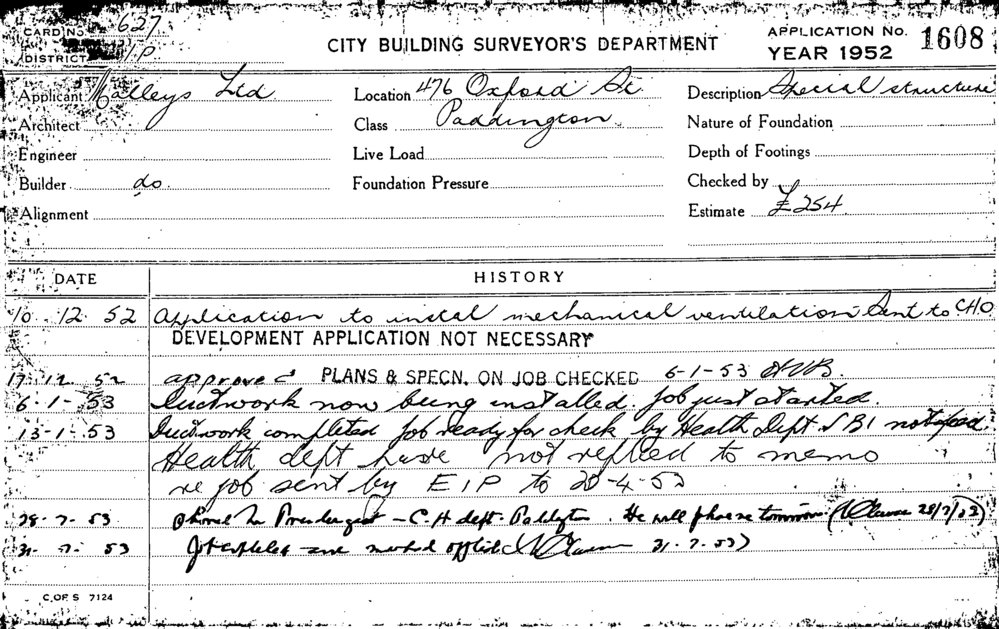 CARD No. 627
DISTRICT I.P.
CITY BUILDING SURVEYOR'S DEPARTMENT
APPLICATION No. 1608
YEAR 1952
Applicant Malleys Ltd
Location 476 Oxford St.
Description Special structure
Architect
Class Paddington
Nature of Foundation
Engineer
Live Load
Depth of Footings
Builder do.
Foundation Pressure
Checked by
Alignment
Estimate £254
DATE HISTORY
10. 12. 52 Application to instal mechanical ventilation Sent to C.H.O.
DEVELOPMENT APPLICATION NOT NECESSARY
17. 12. 52 approved PLANS & SPECN. ON JOB CHECKED 6-1-53
6-1-53 Ductwork now being installed. Job just started.
13-1-53 Ductwork completed Job ready for check by Health Dept
Health dept have not replied to memo
re job sent by EIP to 20-4-53
28-7-53 Phoned Mr Prendergast - C.H. dept. Paddington. He will phone tomorrow
31. 7. 53 31.7.53)
C. OF S 7124